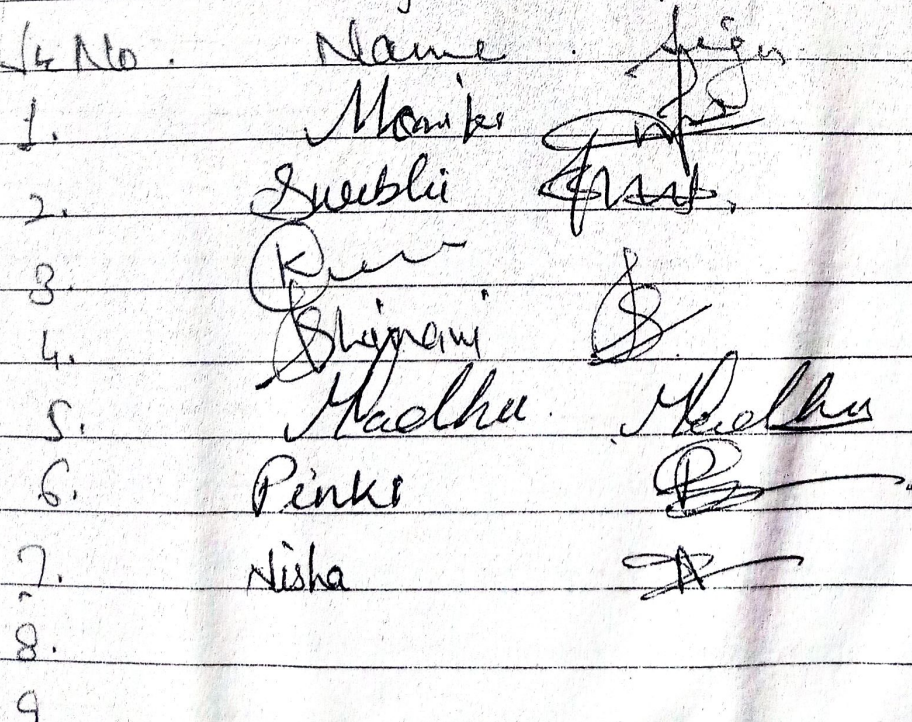 Sr No. Name. Sign
1. Monika
2. Surbhi
3.
4. Shivani
5. Madhu. Madhu
6. Pinki
7. Nisha
8.
9